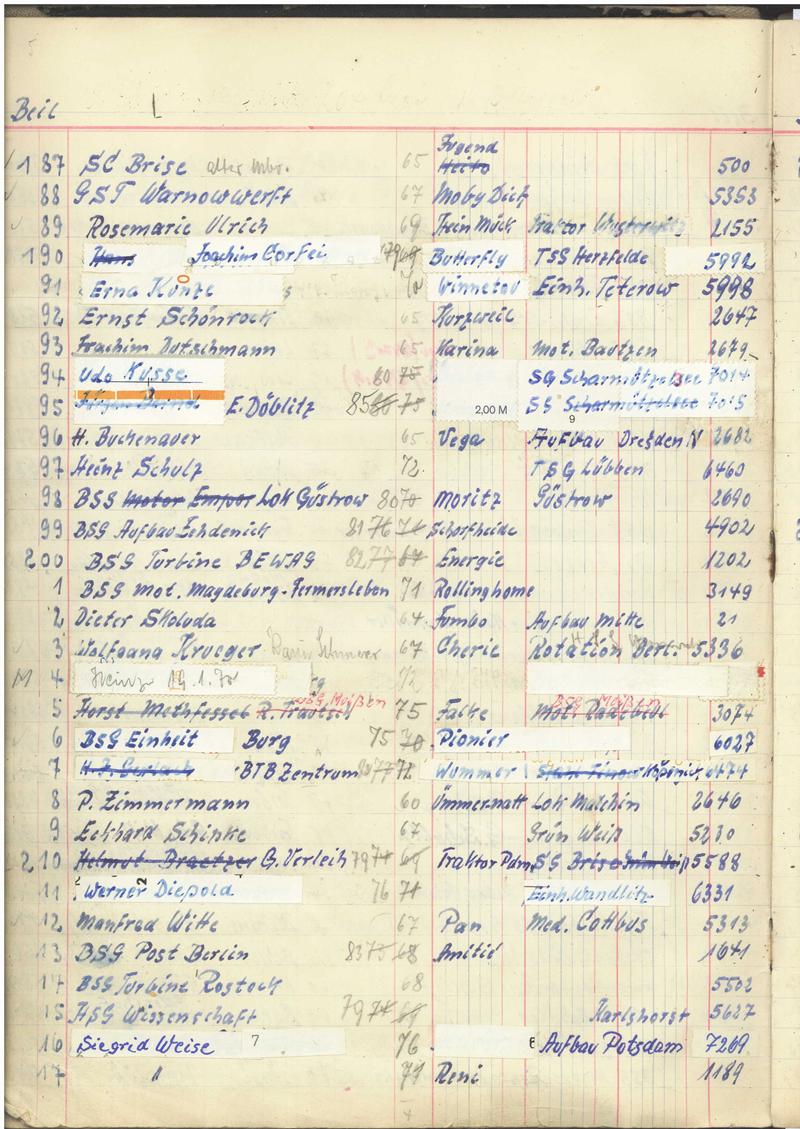 Beil
187 SC Brise alter Mbr. 65 Jugend Heito 500
88 GST Warnowwerft 67 Moby Dick 5353
89 Rosemarie Ulrich 69 Hein Mück Traktor Wusterwitz 2155
190 Hans Joachim Corfei 79 69 Butterfly TSG Herzfelde 5992
91 Erna Kunze Winnetou Einh. Teterow 5998
92 Ernst Schönrock 65 Kurzweil 2647
93 Joachim Dutschmann 65 Karina Mot. Bautzen 2679
94 Udo Kusse 80 75 SG Scharmützelsee 7014
95 E. Döblitz 85 80 75 2,00 M SG Scharmützelsee 7015
9
96 H. Buchenauer 65 Vega Aufbau Dresden N 2682
97 Heinz Schulz 72 TSG Lübben 6460
98 BSG Motor Empor Lok Güstrow 80 70 Moritz Güstrow 2690
99 BSG Aufbau Zehdenick 81 76 71 Schorfheide 4902
200 BSG Turbine BEWAG 82 77 67 Energie 1202
1 BSG Mot. Magdeburg-Fermersleben 71 Rollinghome 3149
2 Dieter Skoluda 64 Jumbo Aufbau Mitte 21
3 Wolfgang Krueger 67 Cherie Rotation Berl. 5336
M 4 Heinz 19.1.71 72
5 Horst Methfessel R. Trautsch BSG Meißen 75 Falke BSG Meißen Mot. 3074
6 BSG Einheit Burg 75 70 Pionier 6027
7 H.J. Gerlach BTB Zentrum 77 72 Wummer Köpenick 6474
8 P. Zimmermann 60 Ümmernatt Lok Malchin 2646
9 Eckhard Schinke 67 Grün Weiß 5230
210 Helmut Draetzer G. Verleih 79 74 69 Traktor Pdm. SG Brise Grün Weiß 5588
11 Werner Diepold 76 71 Einh. Wandlitz 6331
12 Manfred Witte 67 Pan Med. Cottbus 5313
13 BSG Post Berlin 83 75 68 Amitié 1641
14 BSG Turbine Rostock 68 5502
15 HSG Wissenschaft 79 74 69 Karlshorst 5627
16 Siegrid Weise 7 76 6 Aufbau Potsdam 7269
17 " 71 Reni 1189